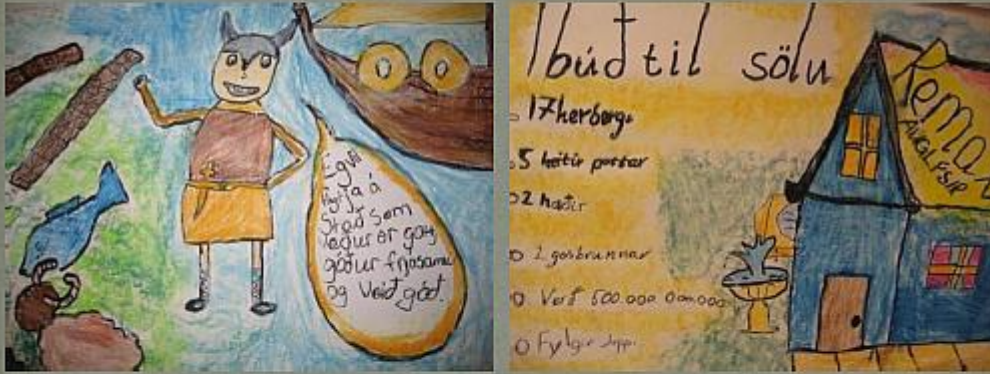 Ég vil
byggja á
stað som
veður er
góður frjósamu
og veiði góð.
Íbúð til sölu
17 herbergi
5 heitir pottar
2 hæðir
2 gosbrunnar
Verð 500.000.000.000
Fylgir Jeppi
Rema